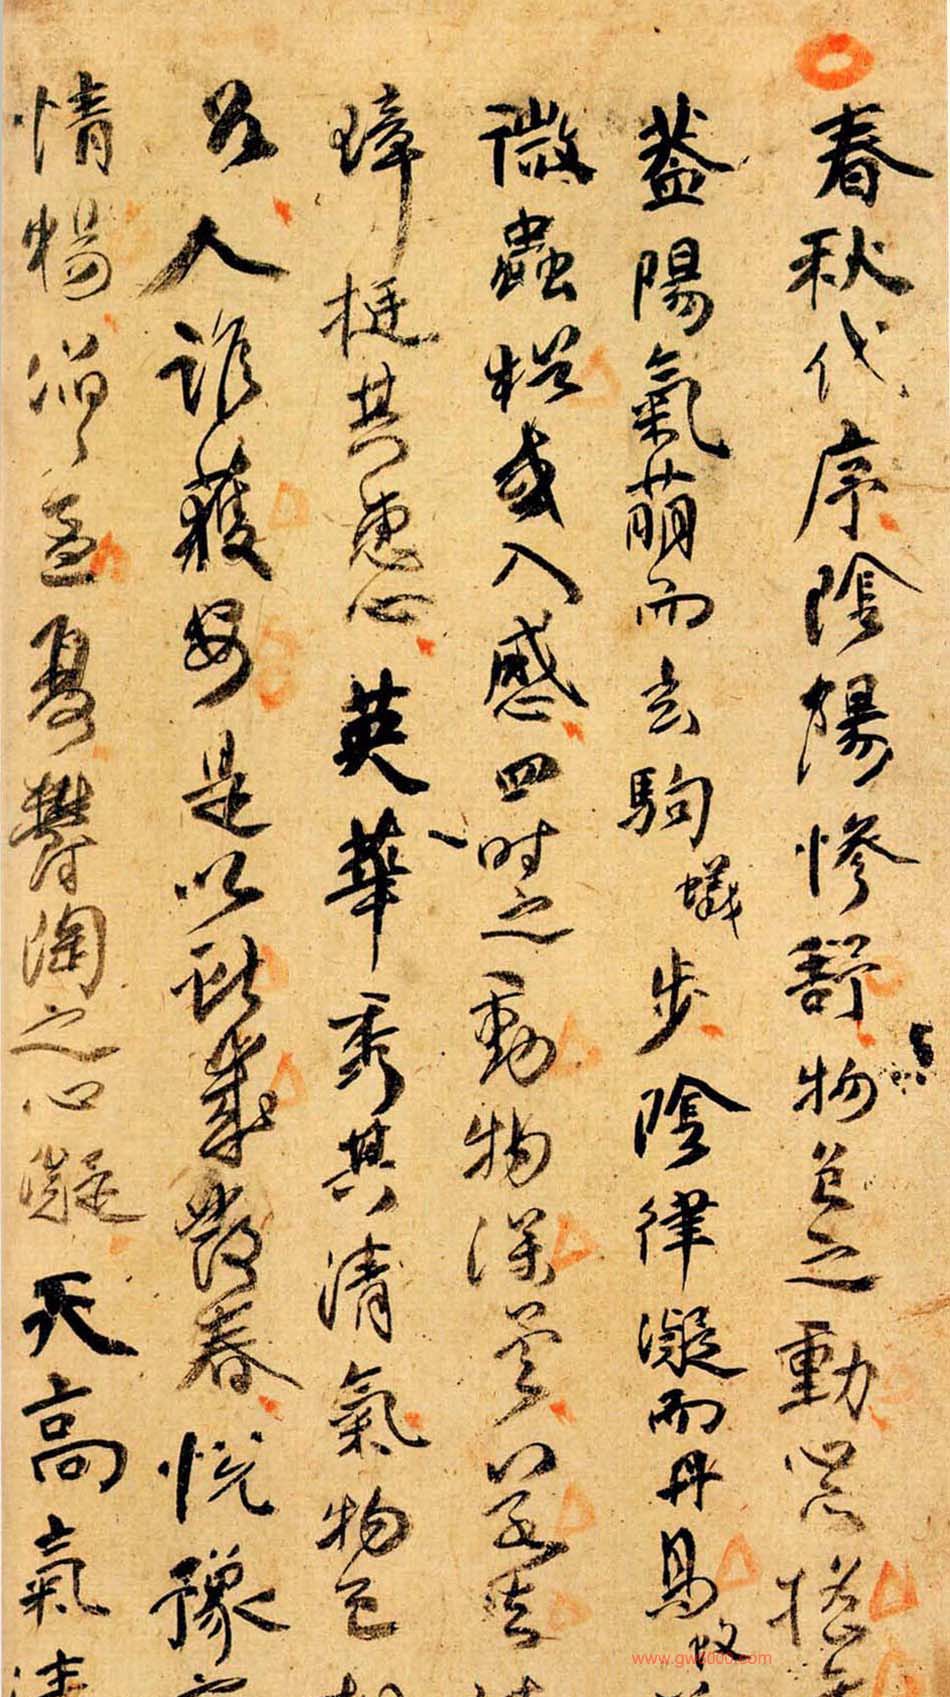 春秋代序陰陽慘舒物色之動心亦搖
蓋陽氣萌而玄駒蟻步陰律凝而丹鳥蚊
微蟲猶或入感四時之動物深矣若夫
璋挺其惠心英華秀其清氣物色相
召人誰獲安是以獻歲發春悅豫之
情暢滔〻孟夏鬱陶之心凝天高氣清
www.gw5000.com